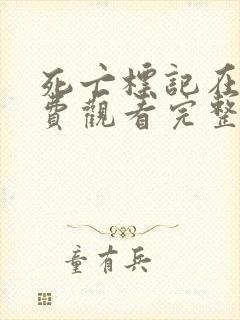 死亡標記在
費觀看完整
童有兵